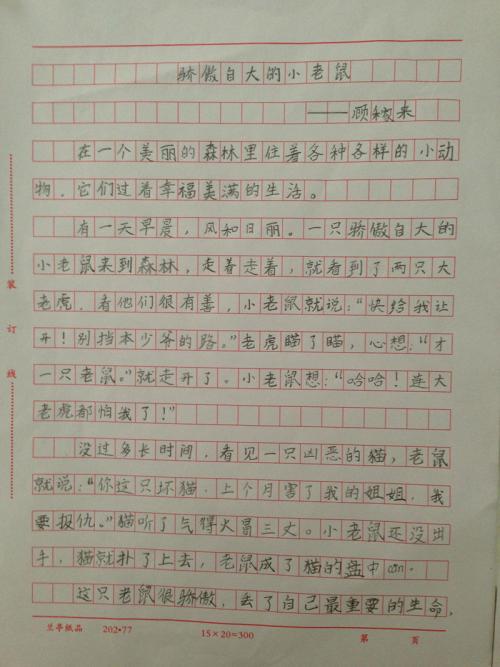 骄傲自大的小老鼠
——顾来
在一个美丽的森林里住着各种各样的小动
物，它们过着幸福美满的生活。
有一天早晨，风和日丽。一只骄傲自大的
小老鼠来到森林，走着走着，就看到了两只大
老虎，看他们很有善，小老鼠就说：“快给我让
开！别挡本少爷的路。”老虎瞄了瞄，心想：“才
一只老鼠。”就走开了。小老鼠想：“哈哈！连大
老虎都怕我了！”
没过多长时间，看见一只凶恶的猫，老鼠
就说：“你这只坏猫，上个月害了我的姐姐，我
要报仇。”猫听了气得火冒三丈。小老鼠还没出
手，猫就扑了上去，老鼠成了猫的盘中cān.
这只老鼠很骄傲，丢了自己最重要的生命，
装
订
线
兰亭纸品 202•77 15×20=300 第 页